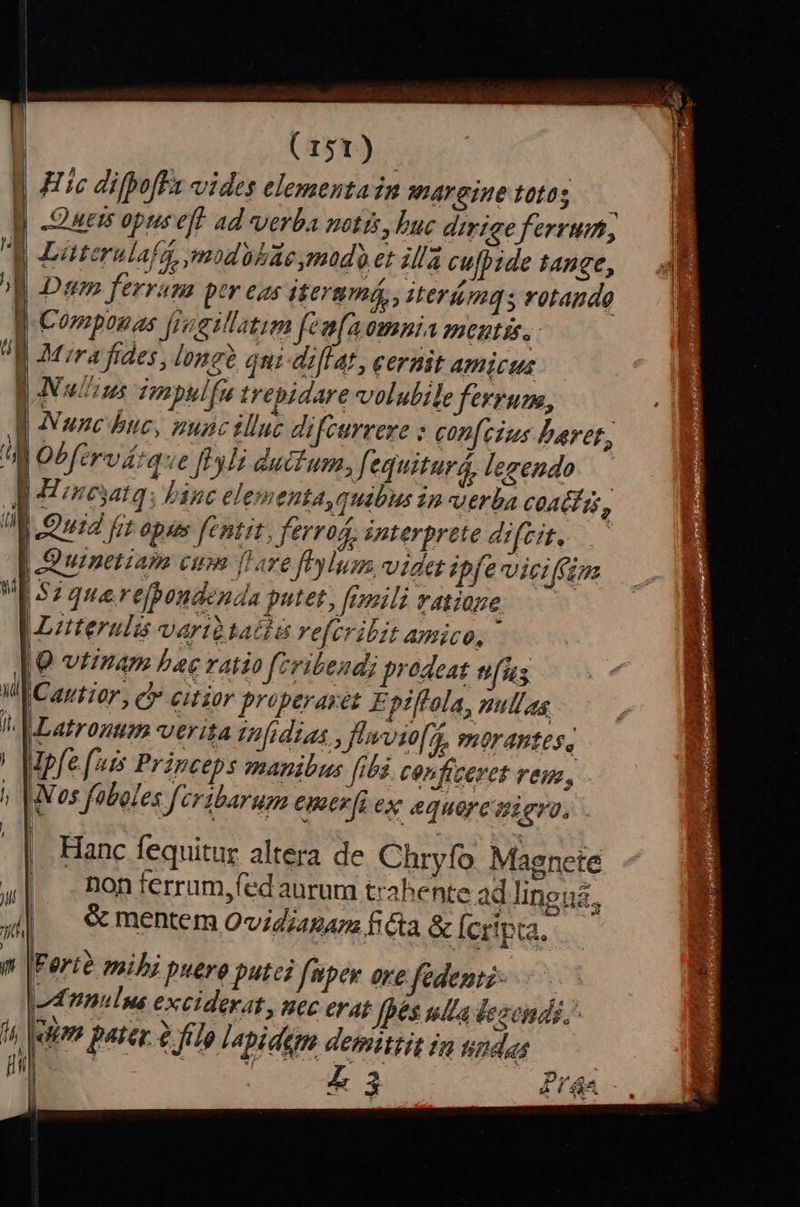 (151)
Hic diſpoſita vides elementa in margine toto;
Queis opus eſt ad verba notis, huc dirige ferrum,
Litterulaſq́, modò hâc, modò et illâ cuſpide tange,
Dum ferrum per eas iterumq́, iterúmq; rotando
Componas ſingillatim ſenſa omnia mentis.
Mira fides, longè qui diſtat, cernit amicus
Nullius impulſu trepidare volubile ferrum,
Nunc huc, nunc illuc diſcurrere: conſcius hæret,
Obſervátque ſtyli ductum, ſequiturq́, legendo
Hincqatq; hinc elementa, quibus in verba coactis,
Quid ſit opus ſentit, ferroq́, interprete diſcit.
Quinetiam cum ſtare ſtylum videt ipſe viciſſim
Si quæ reſpondenda putet, ſimili ratione
Litterulis variè tactis reſcribit amico,
O vtinam hæc ratio ſcribendi prodeat uſu;
Cautior, & citior properaret Epiſtola, nullas
Latronum verita inſidias, fluvioſq́, morantes,
Ipſe ſuis Princeps manibus ſibi conficeret rem,
Nos ſoboles ſcribarum emerſi ex æquore nigro.
Hanc ſequitur altera de Chryſo Magnete
non ferrum, ſed aurum trahente ad linguā,
& mentem Ovidianam ficta & ſcripta.
Fortè mihi puero putei ſuper ore ſedenti
Annulus exciderat, nec erat ſpes ulla legendi.
Cùm pater è filo lapidem demittit in undas
L 3 Præ-